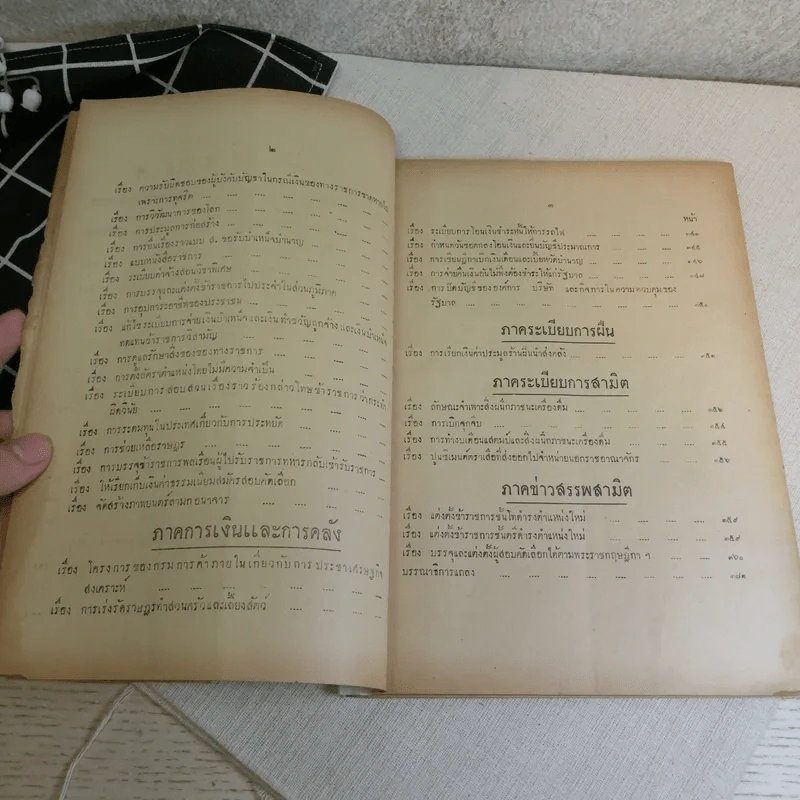 ๒
เรื่อง ความรับผิดชอบของผู้บังคับบัญชาในกรณีเงินของทางราชการขาดหายไป
เพราะการทุจริต .... .... .... ....
เรื่อง การวิวัฒนาการของโลก .... .... .... ....
เรื่อง การประมูลการก่อสร้าง .... .... .... ....
เรื่อง การยื่นเรื่องราวแบบ ส. ขอรับบำเหน็จบำนาญ .... ....
เรื่อง แบบหนังสือราชการ .... .... .... ....
เรื่อง ระเบียบค่าจ้างสอนวิชาพิเศษ .... .... ....
เรื่อง การบรรจุและแต่งตั้งข้าราชการไปประจำในส่วนภูมิภาค ....
เรื่อง การอุปการะอาชีพของประชาชน .... .... ....
เรื่อง แก้ไขระเบียบการจ่ายเงินบำเหน็จและเงินทำขวัญลูกจ้าง และเงินบำเหน็จ
ทดแทนข้าราชการวิสามัญ .... .... ....
เรื่อง การดูแลรักษาสิ่งของของทางราชการ .... .... ....
เรื่อง การตั้งอัตราตำแหน่งโดยไม่มีความจำเป็น .... ....
เรื่อง ระเบียบการสอบสวนเรื่องราวร้องกล่าวโทษข้าราชการว่ากระทำ
ผิดวินัย .... .... .... .... ....
เรื่อง การระดมทุนในประเทศเกี่ยวกับการประหยัด .... ....
เรื่อง การช่วยเหลือราษฎร .... .... .... ....
เรื่อง การบรรจุข้าราชการพลเรือนผู้ไปรับราชการทหารกลับเข้ารับราชการ ....
เรื่อง ให้เรียกเก็บเงินค่าธรรมเนียมสมัครสอบคัดเลือก .... ....
เรื่อง จัดสร้างภาพยนตร์ตามทอนาจาร .... .... ....
ภาคการเงินและการคลัง
เรื่อง โครงการของกรมการค้าภายในเกี่ยวกับการประชาเศรษฐกิจ
สงเคราะห์ .... .... .... ....
เรื่อง การเร่งรัดราษฎรทำสวนครัวและเลี้ยงสัตว์ .... ....
๓
หน้า
เรื่อง ระเบียบการโอนเงินชำระหนี้ให้การรถไฟ .... ....
เรื่อง กำหนดวันขอตกลงโอนเงินและยืมบัญชีประมาณการ ....
เรื่อง การเขียนฎีกาเบิกเงินเดือนและเบี้ยหวัดบำนาญ ....
เรื่อง การจ่ายคืนเงินอันไม่พึงต้องชำระให้แก่รัฐบาล ....
เรื่อง การปิดบัญชีขององค์การ บริษัท และกิจการในความควบคุมของ
รัฐบาล .... .... .... .... ....
ภาคระเบียบการฝิ่น
เรื่อง การเรียกเงินค่าประมูลร้านฝิ่นนำส่งคลัง .... .... ๓๕๑
ภาคระเบียบการสามิต
เรื่อง ลักษณะจำเพาะสิ่งผนึกภาชนะเครื่องดื่ม .... .... ๓๕๒
เรื่อง การเบิกจุกจีบ .... .... .... .... ๓๕๔
เรื่อง การทำใบเดือนแสตมป์และสิ่งผนึกภาชนะเครื่องดื่ม .... ๓๕๕
เรื่อง ปูนซิเมนต์ตราเสือที่ส่งออกไปจำหน่ายนอกราชอาณาจักร ....
ภาคข่าวสรรพสามิต
เรื่อง แต่งตั้งข้าราชการชั้นโทดำรงตำแหน่งใหม่ .... .... ๓๕๙
เรื่อง แต่งตั้งข้าราชการชั้นตรีดำรงตำแหน่งใหม่ .... .... ๓๕๙
เรื่อง บรรจุและแต่งตั้งผู้สอบคัดเลือกได้ตามพระราชกฤษฎีกา ฯ ....
บรรณาธิการแถลง .... .... .... .... ๓๗๑